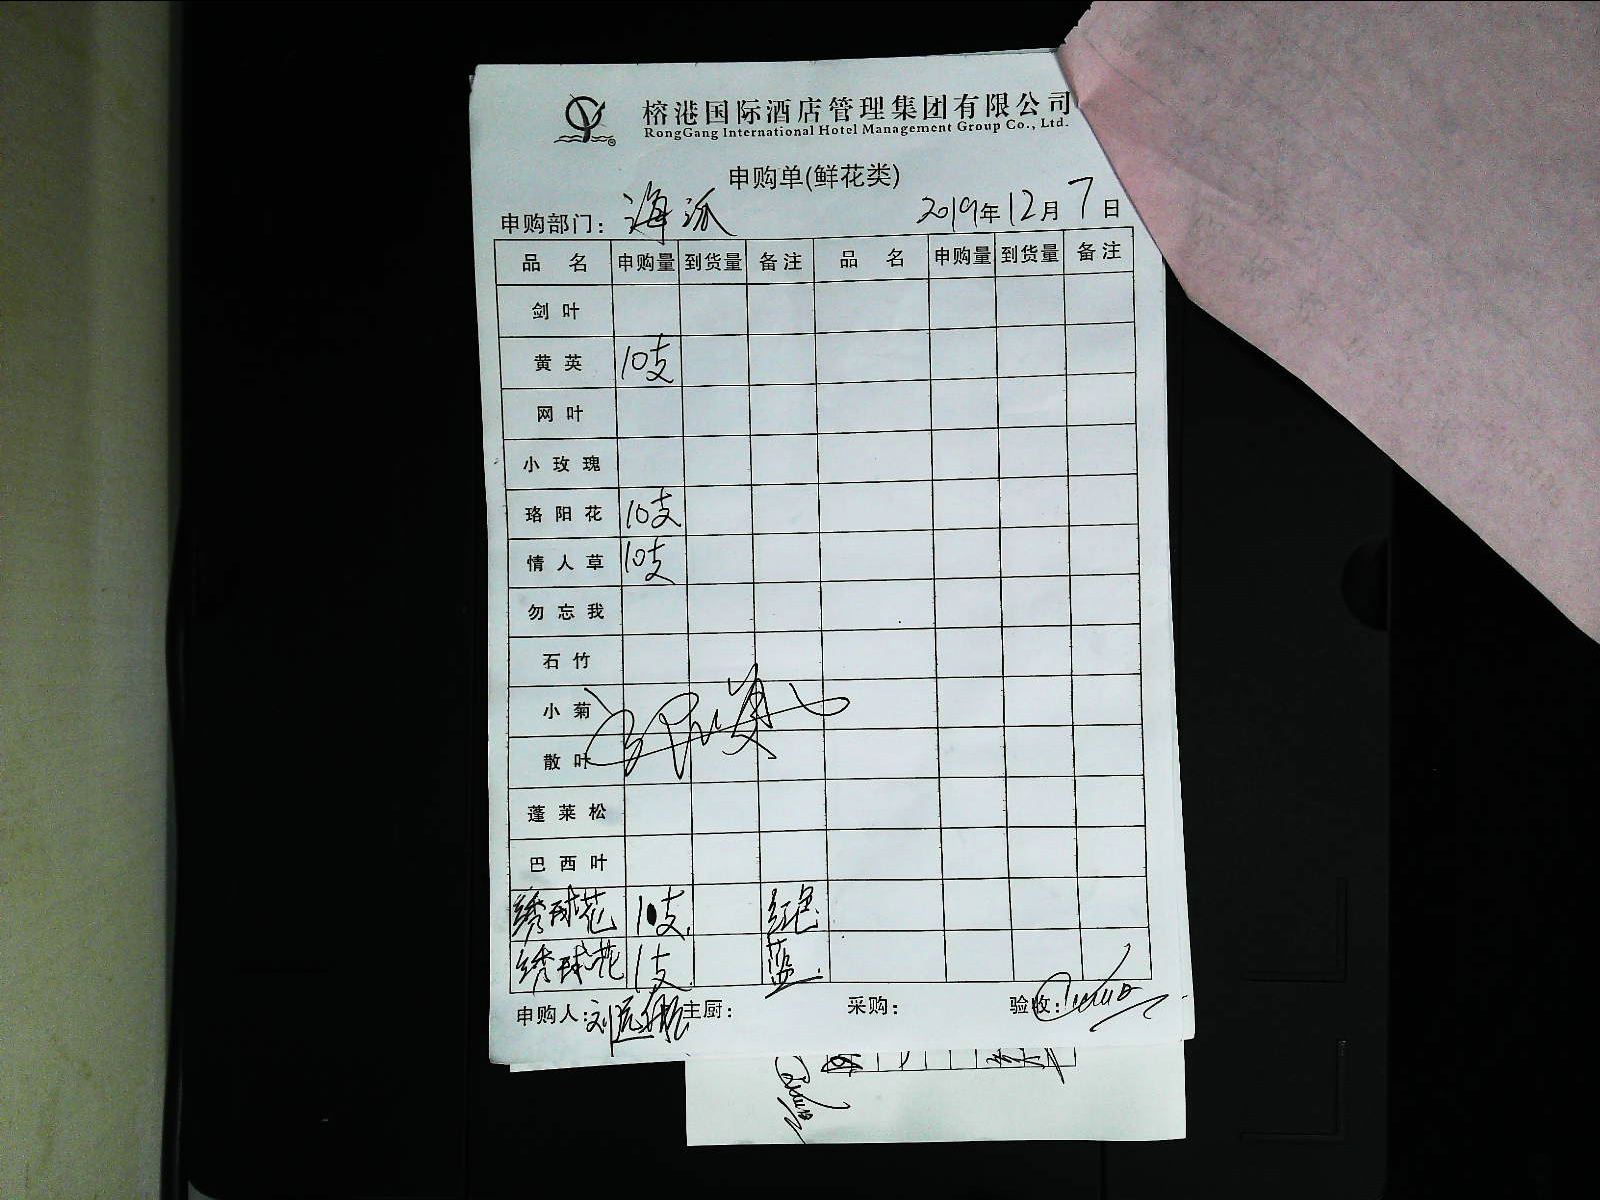 榕港国际酒店管理集团有限公司
RongGang International Hotel Management Group Co., Ltd.
申购单(鲜花类)
申购部门: 海派 2019年12月7日
品名 申购量 到货量 备注 品名 申购量 到货量 备注
剑叶
黄英 10支
网叶
小玫瑰
珞阳花 10支
情人草 10支
勿忘我
石竹
小菊
散叶
蓬莱松
巴西叶
绣球花 10支 红色
绣球花 1支 蓝
申购人: 主厨: 采购: 验收: